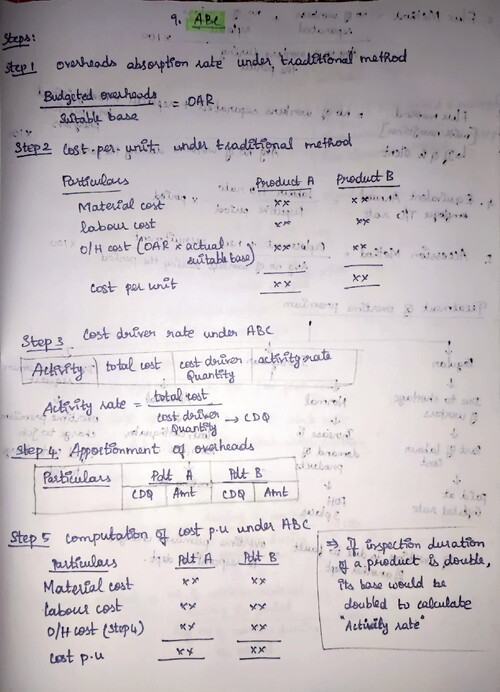 9. ABC
Steps:
Step 1 overheads absorption rate under traditional method
Budgeted overheads
Suitable base
= OAR
Step 2 Cost per unit under traditional method
Particulars Product A Product B
Material cost xx xx
labour cost xx xx
O/H cost (OAR x actual suitable base) xx xx
cost per unit xx xx
Step 3 Cost driver rate under ABC
Activity total cost cost driver Quantity activity rate
Activity rate = total cost
cost driver Quantity → CDQ
Step 4: Apportionment of overheads
Particulars Pdt A Pdt B
CDQ Amt CDQ Amt
Step 5 computation of cost p.u under ABC
Particulars Pdt A Pdt B
Material cost xx xx
labour cost xx xx
O/H cost (Step 4) xx xx
cost p.u xx xx
⇒ If inspection duration
of a product is double,
its base would be
doubled to calculate
"Activity rate"